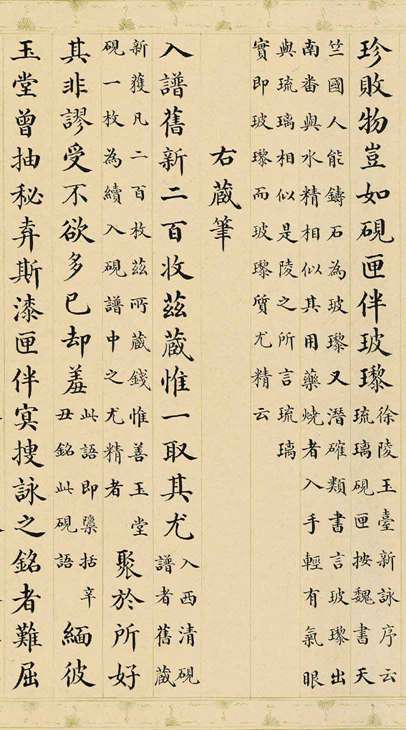 珍敗物豈如硯匣伴玻瓈徐陵玉臺新詠序云
琉璃硯匣按魏書天
竺國人能鑄石為玻瓈又潛確類書言玻瓈出
南番與水精相似其用藥燒者入手輕有氣眼
與琉璃相似是陵之所言琉璃
實即玻瓈而玻瓈質尤精云
右蔵筆
入譜舊新二百收茲蔵惟一取其尤入西清硯
譜者舊蔵
新獲凡二百枚茲所蔵錢惟善玉堂
硯一枚為續入硯譜中之尤精者
聚於所好
其非謬受不欲多已却羞此語即檃括辛
丑銘此硯語
緬彼
玉堂曾抽秘弆斯漆匣伴㝠搜詠之銘者難屈